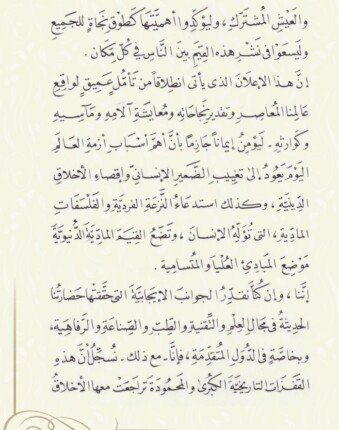 والعَيْشِ المُشتَرَكِ، وليُؤكِّدُوا أهمِّيَّتَها كطَوْقِ نَجَاةٍ للجَمِيعِ
وليَسعَوْا في نَشْرِ هذه القِيَمِ بينَ النَّاسِ في كُلِّ مكانٍ.
إنَّ هذا الإعلانَ الذي يأتي انطِلاقًا من تَأمُّلٍ عَمِيقٍ لواقِعِ
عالَمِنا المُعاصِرِ وتقديرِ نجاحاتِه ومُعايَشةِ آلامِه ومَآسِيهِ
وكَوارِثِه - لَيُؤمِنُ إيمانًا جازمًا بأنَّ أهمَّ أسبابِ أزمةِ العالَمِ
اليَوْمَ يَعُودُ إلى تَغيِيبِ الضَّمِيرِ الإنسانيِّ وإقصاءِ الأخلاقِ
الدِّينِيَّةِ، وكذلك استِدعاءُ النَّزْعَةِ الفرديَّةِ والفَلْسَفاتِ
المادِيَّةِ، التي تُؤَلِّهُ الإنسانَ، وتَضَعُ القِيَمَ المادِّيَّةَ الدُّنيويَّةَ
مَوْضِعَ المَبادِئِ العُلْيَا والمُتسامِيةِ.
إنَّنا، وإنْ كُنَّا نُقدِّرُ الجوانبَ الإيجابيَّةَ التي حقَّقَتْها حَضارَتُنا
الحَدِيثةُ في مَجالِ العِلْمِ والتِّقنيةِ والطِّبِّ والصِّناعةِ والرَّفاهِيةِ،
وبخاصَّةٍ في الدُّوَلِ المُتقدِّمةِ، فإنَّا - مع ذلك - نُسَجِّلُ أنَّ هذه
القَفزات التاريخيَّةَ الكُبرى والمَحمُودةَ تَراجَعَتْ معها الأخلاقُ